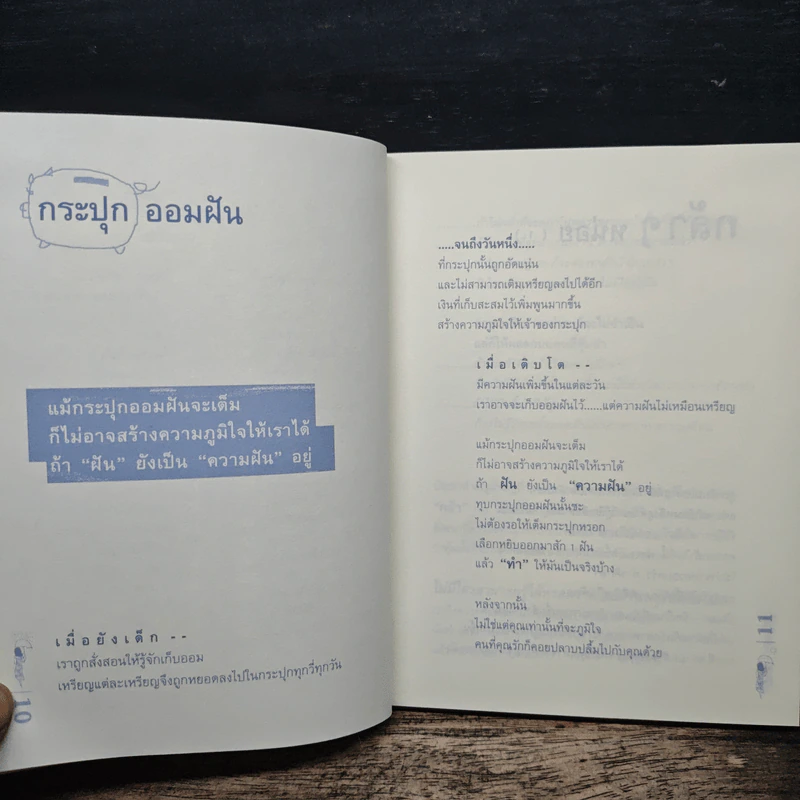 กระปุก ออมฝัน
แม้กระปุกออมฝันจะเต็ม
ก็ไม่อาจสร้างความภูมิใจให้เราได้
ถ้า “ฝัน” ยังเป็น “ความฝัน” อยู่
เมื่อยังเด็ก --
เราถูกสั่งสอนให้รู้จักเก็บออม
เหรียญแต่ละเหรียญจึงถูกหยอดลงไปในกระปุกทุกวี่ทุกวัน
10
.....จนถึงวันหนึ่ง.....
ที่กระปุกนั้นถูกอัดแน่น
และไม่สามารถเติมเหรียญลงไปได้อีก
เงินที่เก็บสะสมไว้เพิ่มพูนมากขึ้น
สร้างความภูมิใจให้เจ้าของกระปุก
เมื่อเติบโต --
มีความฝันเพิ่มขึ้นในแต่ละวัน
เราอาจจะเก็บออมฝันไว้......แต่ความฝันไม่เหมือนเหรียญ
แม้กระปุกออมฝันจะเต็ม
ก็ไม่อาจสร้างความภูมิใจให้เราได้
ถ้า ฝัน ยังเป็น “ความฝัน” อยู่
ทุบกระปุกออมฝันนั้นซะ
ไม่ต้องรอให้เต็มกระปุกหรอก
เลือกหยิบออกมาสัก 1 ฝัน
แล้ว “ทำ” ให้มันเป็นจริงบ้าง
หลังจากนั้น
ไม่ใช่แต่คุณเท่านั้นที่จะภูมิใจ
คนที่คุณรักก็คอยปลาบปลื้มไปกับคุณด้วย
11